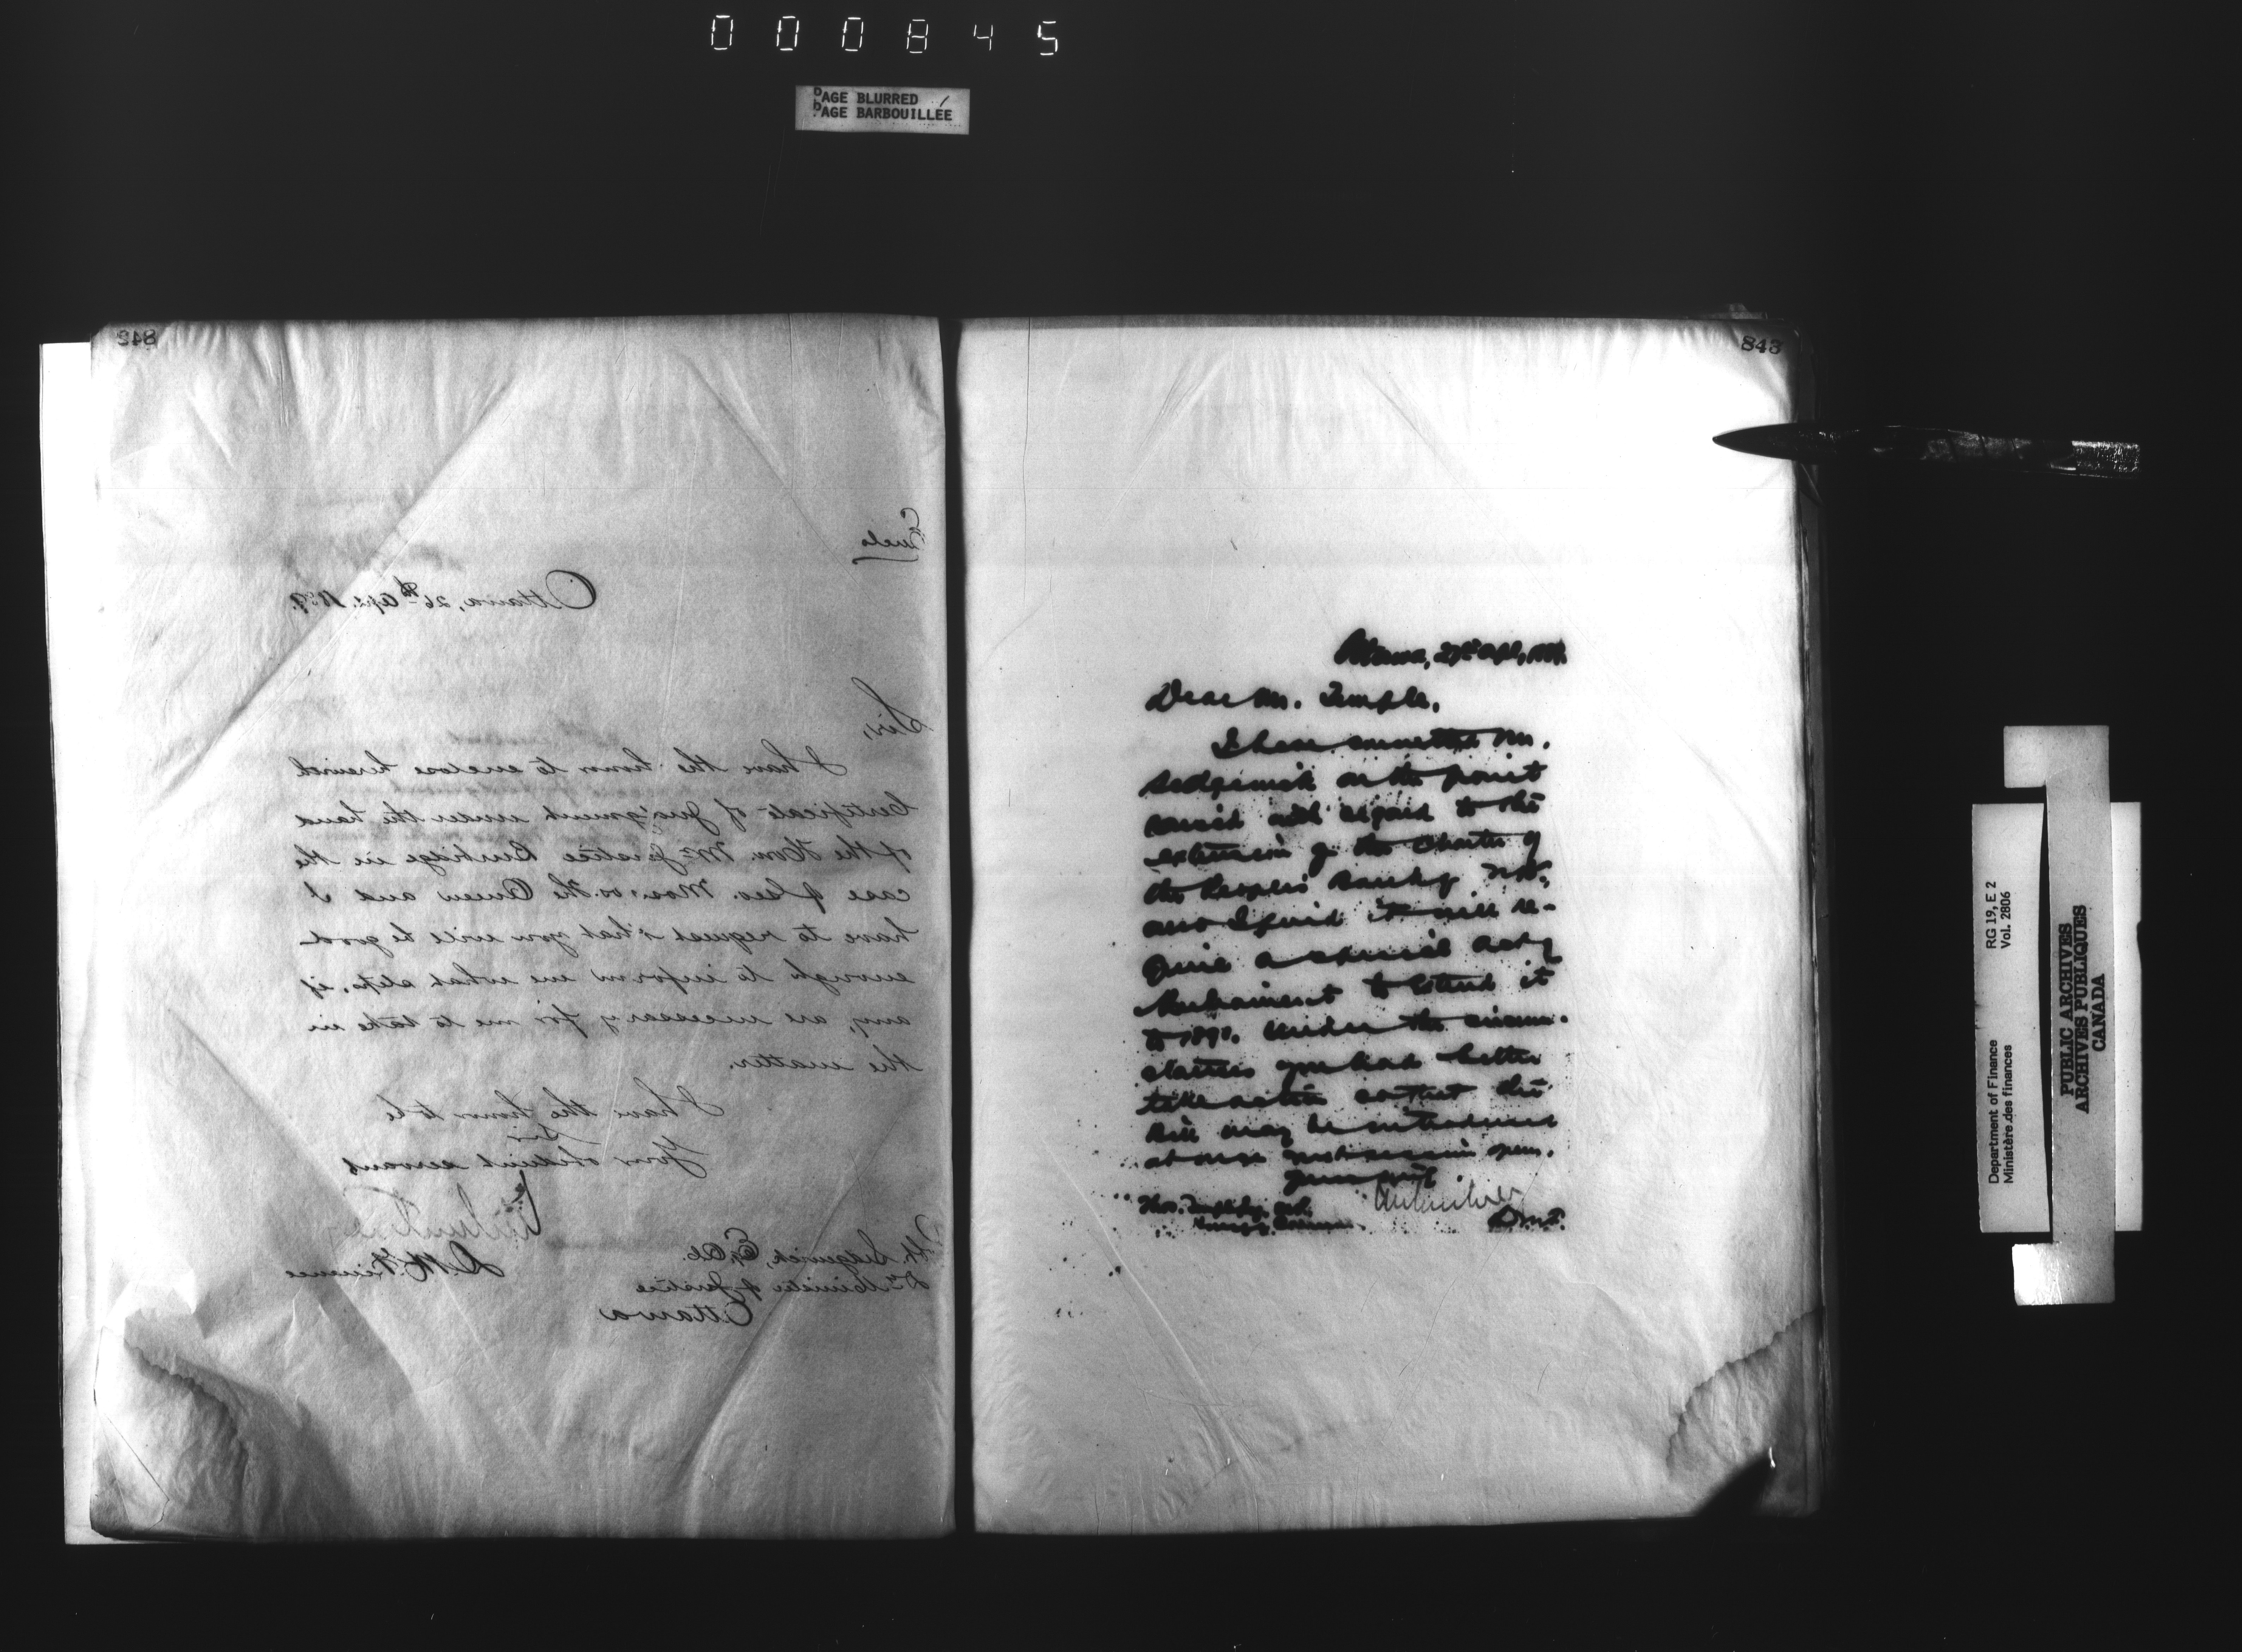 000845
PAGE BLURRED
PAGE BARBOUILLÉE
842
Encls
Ottawa, 26th Apl. 1889.
Sir,
I have the honor to enclose herewith
Certificate of Judgment under the hand
of the Hon. Mr Justice Burbidge in the
case of Geo. Moss vs. The Queen and I
have to request that you will be good
enough to inform me what steps, if
any, are necessary for me to take in
the matter.
I have the honor to be
Sir
Your obedient servant
D.M. Finance
Sedgewick, Esq.
Dy Minister of Justice
Ottawa
843
Ottawa, 27th Apl,
Dear Mr. Temple,
I have consulted Mr.
Sedgewick on the point
raised with regard to the
extension of the Charter of
the People's Bank of N.B.,
and I find it will re-
quire a special act of
Parliament to extend it
to 1891. Under the circum-
stances you had better
take action so that the
Bill may be introduced
at once next session opens.
Yours
Thos. Temple, Esq.
D.M.F.
RG 19, E 2
Vol. 2806
Department of Finance
Ministère des finances
PUBLIC ARCHIVES
ARCHIVES PUBLIQUES
CANADA